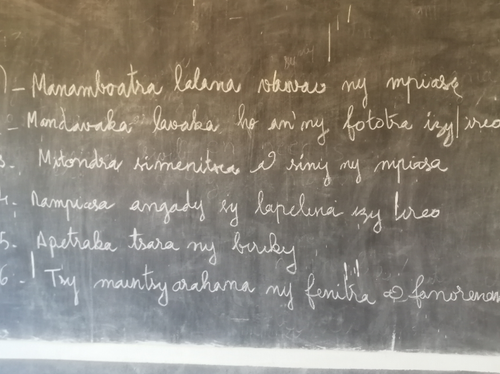 1 - Manamboatra lalana vaovao ny mpiasa
2 - Mandavaka lavaka ho an'ny fototra izy/ireo
3 - Mitondra simenitra sy siny ny mpiasa
4. Mampiasa angady sy lapelina izy ireo
5. Apetraka tsara ny biriky
6 - Tsy maintsy arahana ny fenitra